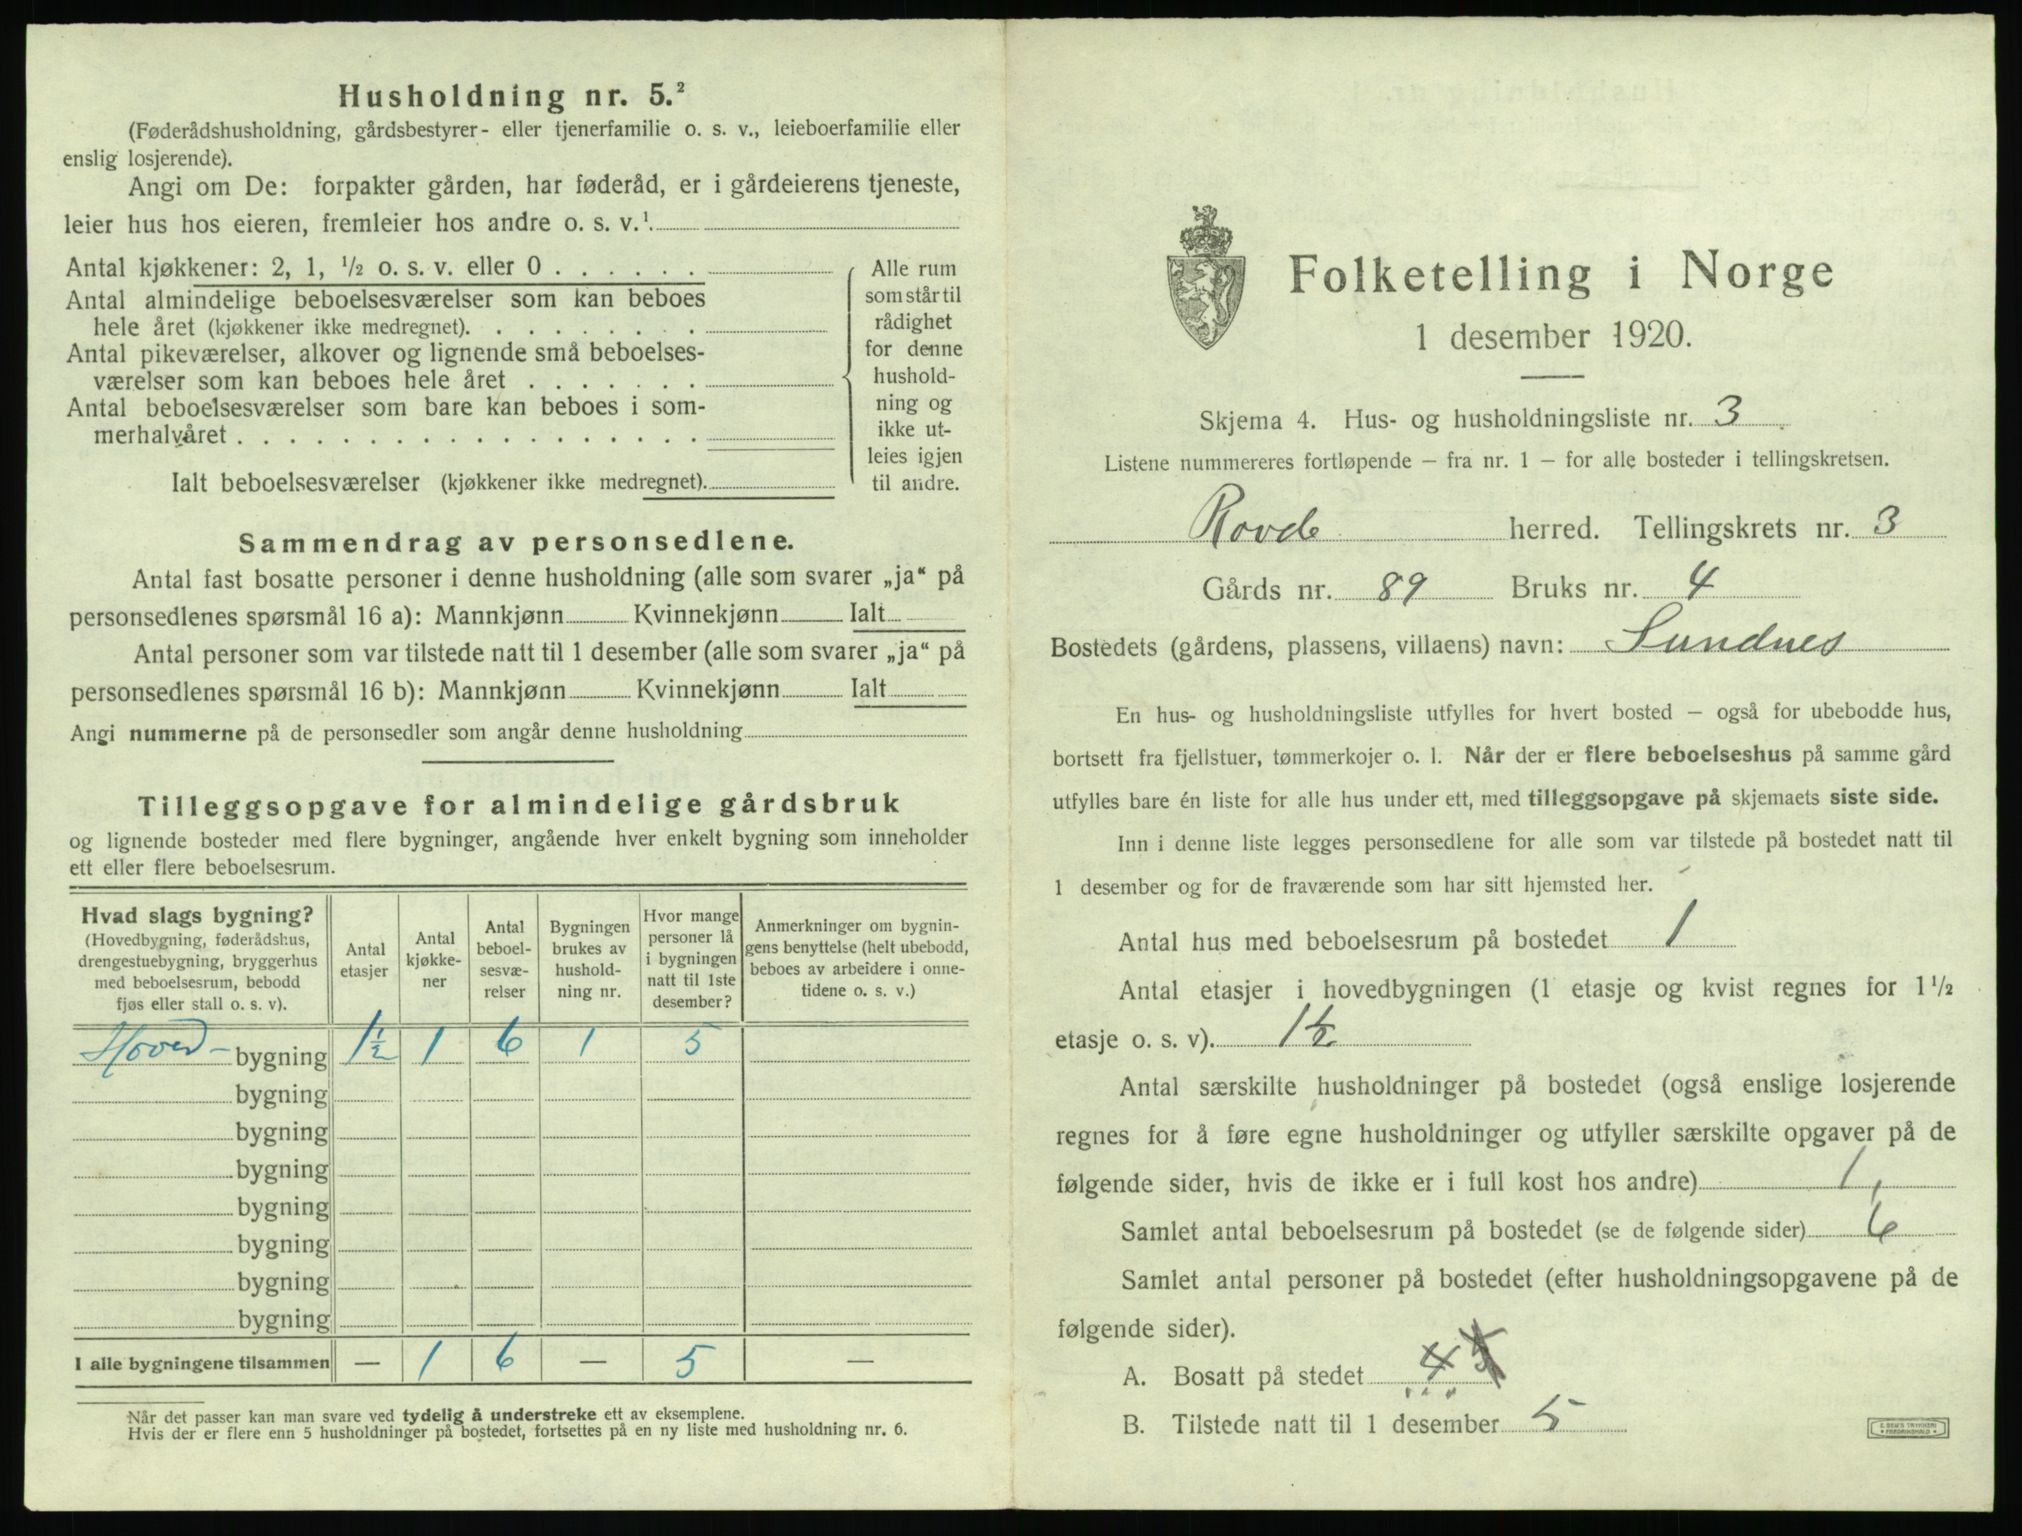 Husholdning nr. 5.²
(Føderådshusholdning, gårdsbestyrer- eller tjenerfamilie o. s. v., leieboerfamilie eller
enslig losjerende).
Angi om De: forpakter gården, har føderåd, er i gårdeierens tjeneste,
leier hus hos eieren, fremleier hos andre o. s. v.¹
Antal kjøkkener: 2, 1, ½ o. s. v. eller 0
Antal almindelige beboelsesværelser som kan beboes
hele året (kjøkkener ikke medregnet).
Antal pikeværelser, alkover og lignende små beboelses-
værelser som kan beboes hele året
Antal beboelsesværelser som bare kan beboes i som-
merhalvåret
Ialt beboelsesværelser (kjøkkener ikke medregnet).
Alle rum
som står til
rådighet
for denne
hushold-
ning og
ikke ut-
leies igjen
til andre.
Sammendrag av personsedlene.
Antal fast bosatte personer i denne husholdning (alle som svarer „ja“ på
personsedlenes spørsmål 16 a): Mannkjønn Kvinnekjønn Ialt
Antal personer som var tilstede natt til 1 desember (alle som svarer „ja“ på
personsedlenes spørsmål 16 b): Mannkjønn Kvinnekjønn Ialt
Angi nummerne på de personsedler som angår denne husholdning
Tilleggsopgave for almindelige gårdsbruk
og lignende bosteder med flere bygninger, angående hver enkelt bygning som inneholder
ett eller flere beboelsesrum.
Hvad slags bygning?
(Hovedbygning, føderådshus,
drengestuebygning, bryggerhus
med beboelsesrum, bebodd
fjøs eller stall o. s. v).
Antal
etasjer
Antal
kjøkke-
ner
Antal
beboel-
sesvæ-
relser
Bygningen
brukes av
hushold-
ning nr.
Hvor mange
personer lå
i bygningen
natt til 1ste
desember?
Anmerkninger om bygnin-
gens benyttelse (helt ubebodd,
beboes av arbeidere i onne-
tidene o. s. v.)
Hoved- bygning 1½ 1 6 1 5
bygning
bygning
bygning
bygning
bygning
bygning
bygning
I alle bygningene tilsammen — 1 6 — 5 —
¹ Når det passer kan man svare ved tydelig å understreke ett av eksemplene.
² Hvis der er flere enn 5 husholdninger på bostedet, fortsettes på en ny liste med husholdning nr. 6.
Folketelling i Norge
1 desember 1920.
Skjema 4. Hus- og husholdningsliste nr. 3
Listene nummereres fortløpende – fra nr. 1 – for alle bosteder i tellingskretsen.
Rovde herred. Tellingskrets nr. 3
Gårds nr. 89 Bruks nr. 4
Bostedets (gårdens, plassens, villaens) navn: Sundnes
En hus- og husholdningsliste utfylles for hvert bosted – også for ubebodde hus,
bortsett fra fjellstuer, tømmerkojer o. l. Når der er flere beboelseshus på samme gård
utfylles bare én liste for alle hus under ett, med tilleggsopgave på skjemaets siste side.
Inn i denne liste legges personsedlene for alle som var tilstede på bostedet natt til
1 desember og for de fraværende som har sitt hjemsted her.
Antal hus med beboelsesrum på bostedet 1
Antal etasjer i hovedbygningen (1 etasje og kvist regnes for 1½
etasje o. s. v). 1½
Antal særskilte husholdninger på bostedet (også enslige losjerende
regnes for å føre egne husholdninger og utfyller særskilte opgaver på de
følgende sider, hvis de ikke er i full kost hos andre) 1
Samlet antal beboelsesrum på bostedet (se de følgende sider) 6
Samlet antal personer på bostedet (efter husholdningsopgavene på de
følgende sider).
A. Bosatt på stedet 4 5
B. Tilstede natt til 1 desember 5
E. SEM'S TRYKKERI
FREDRIKSHALD